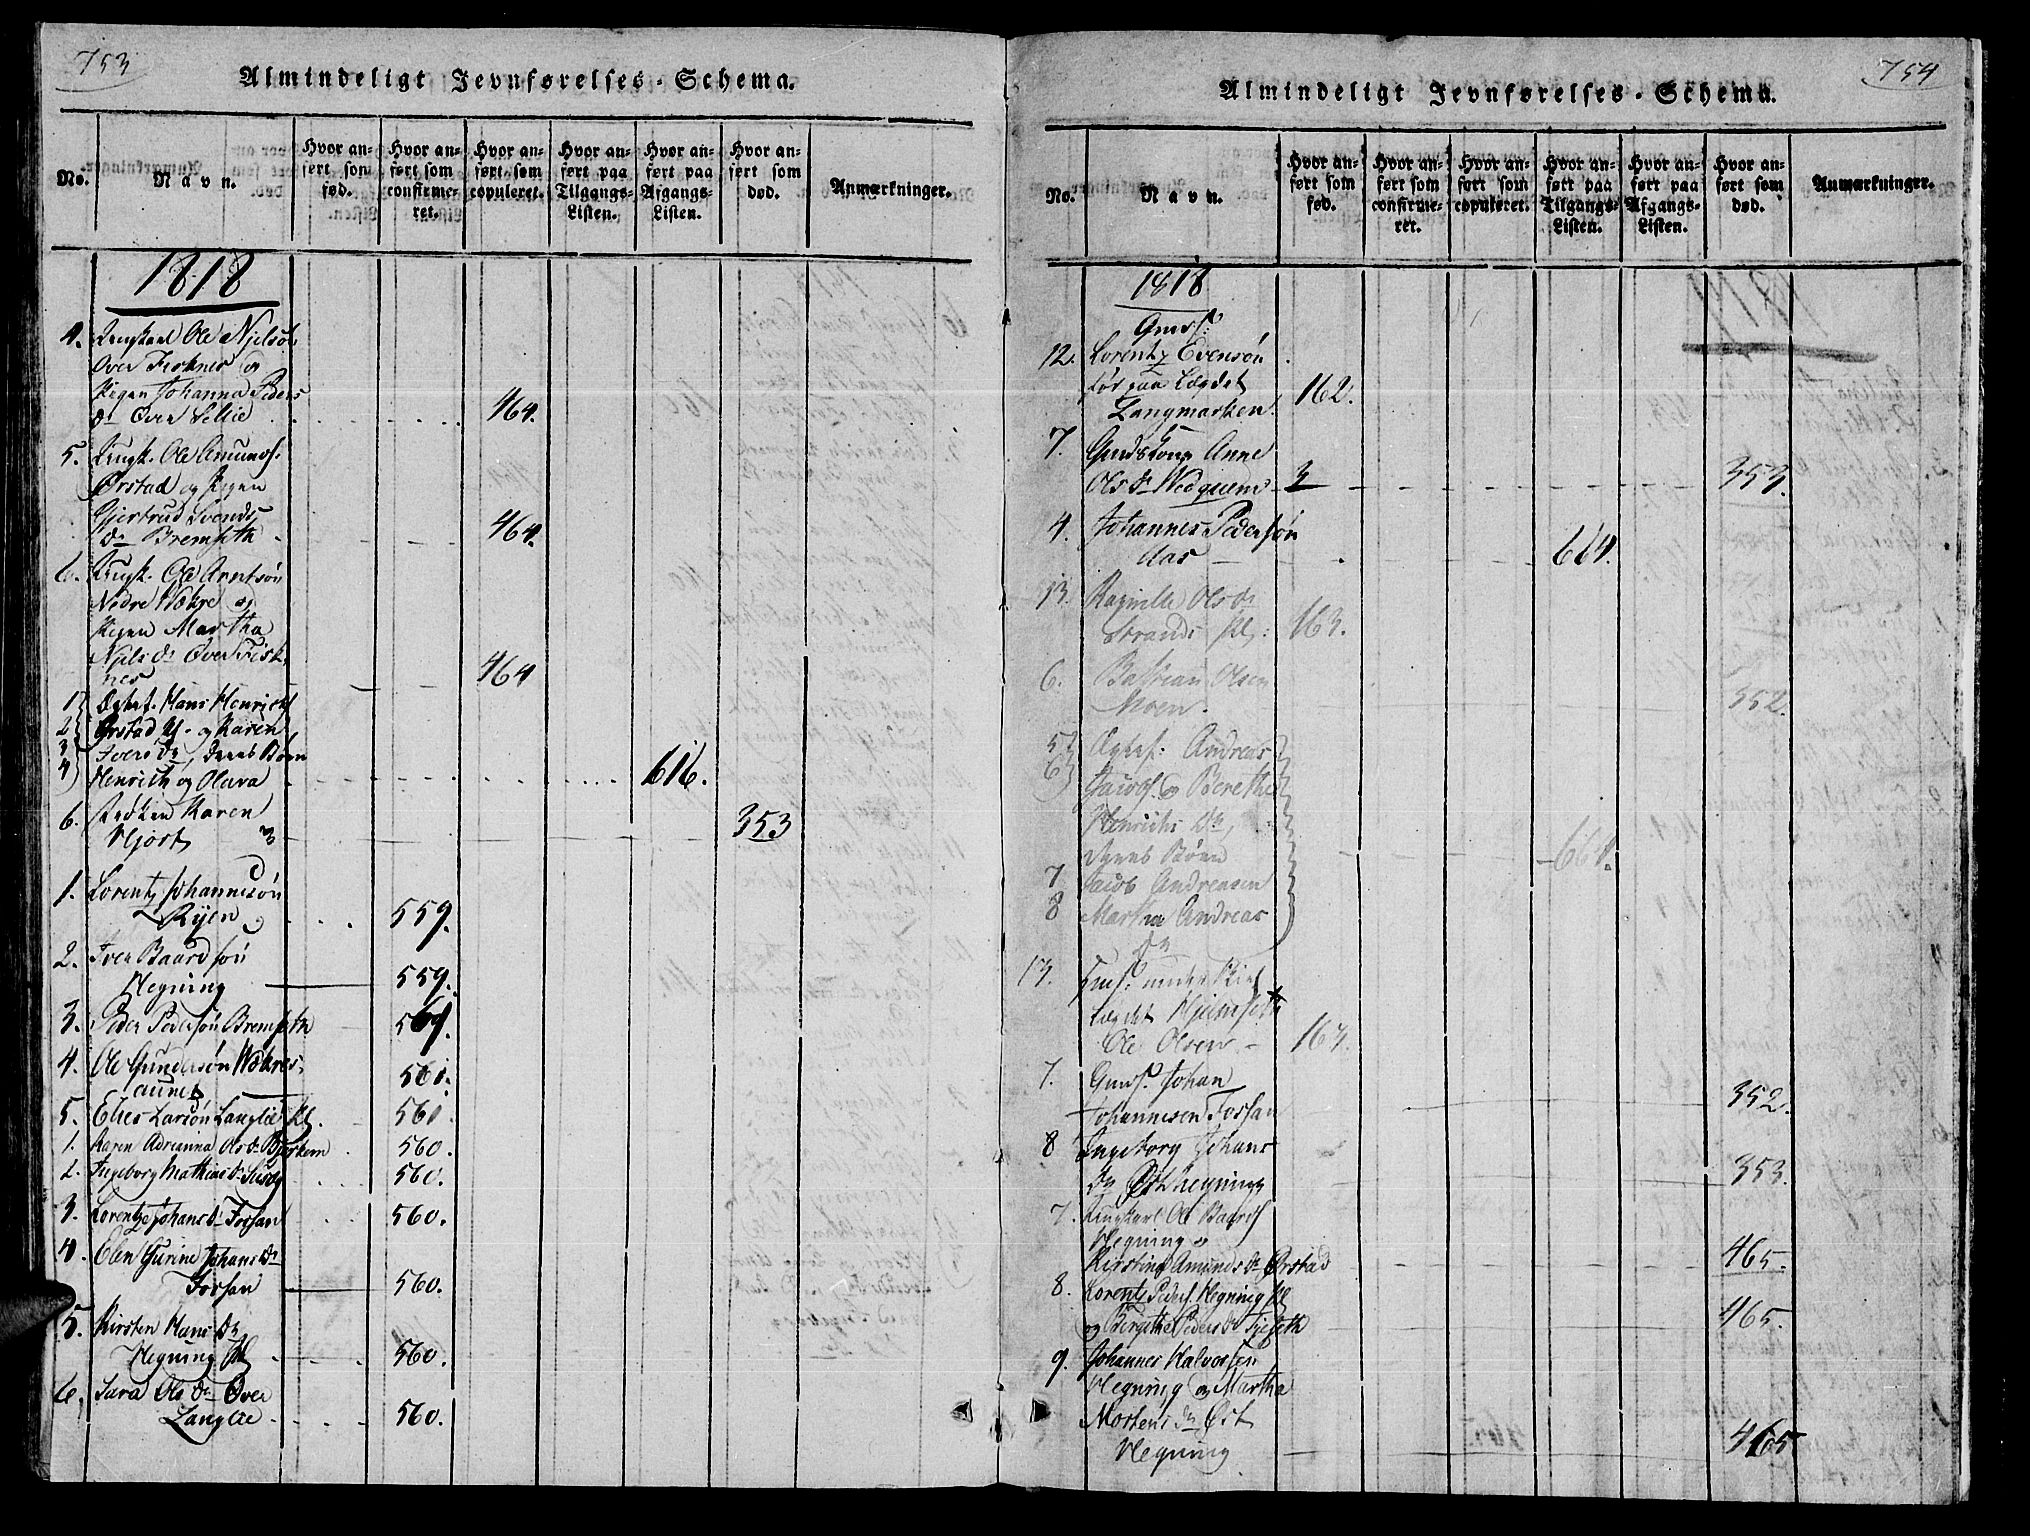 753
Almindeligt Jevnførelses-Schema.
No.
Navn.
Hvor anført som fød.
Hvor anført som confirmeret.
Hvor anført som copuleret.
Hvor anført paa Tilgangs-Listen.
Hvor anført paa Afgangs-Listen.
Hvor anført som død.
Anmærkninger.
1818
4. Ungkarl Ole Njelsøn
Over Fisknes og
Pigen Johanna Peders
Dr Over Sellie 464.
5. Ungk. Ole Amunds.
Ørstad og Pigen
Gjertrud Svends
Dr Bremseth 464.
6. Ungk. Ole Arntsøn
Nedre Wohre og
Pigen Martha
Njels Dr Over Fisk
nes 464
1 Ægtef. Hans Henrichs
2 Ørstad Pl. og Karen
3 Ivers Dr, deres Børn
4 Henrich og Olava 616.
6. Frøken Karen
Hjort 3 353
1. Lorentz Johannesøn
Ryen 559.
2. Iver Baardsøn
Hegning 559.
3. Peder Pedersøn Bremseth 561.
4. Ole Gundersøn Wohres
aunet 561.
5. Elies Larsøn Langlie Pl. 561
1. Karen Adrianna Ols Dr Bjerkem 560.
2. Ingeborg Mathias Dr 560.
3. Lorentze Johans Dr Fossan 560.
4. Elen Gurine Johans Dr
Fossan 560.
5. Kirsten Hans Dr
Hegning Pl 560.
6. Sara Ols Dr Over
Langlie 560.
754
Almindeligt Jevnførelses-Schema.
No.
Navn.
Hvor anført som fød.
Hvor anført som confirmeret.
Hvor anført som copuleret.
Hvor anført paa Tilgangs-Listen.
Hvor anført paa Afgangs-Listen.
Hvor anført som død.
Anmærkninger.
1818
Gms.
12. Lorentz Evensøn
før paa Lægdet
Langmarken. 162.
7. Gudskone Anne
Ols Dr Wedquem 3 353.
4. Johannes Pedersøn
Aas 664.
13. Ragnille Ols Dr
Strands Pl: 163.
6. Bastian Olsen
Moen. 352.
5 Ægtef: Andreas
6 Jacobs. og Berethe
Henrichs Dr,
deres Børn 664.
7 Jacob Andreasen
8 Martha Andreas
Dr
13. under
Lægdet Hjemseth
Ole Olsen 163.
7. Gmd. Johan
Johannesen Fossan 352.
8 Ingeborg Johans
Dr Øst Hegning 353.
7. Ungkarl Ole Baards
Hegning og
Kirstine Amunds Dr Ørstad 465.
8. Lorentz Peders. Hegning Pl
og Birgithe Peders Dr 465.
9. Johannes Halvorsen
Hegning og Martha
Mortens Dr Øst
Hegning 465